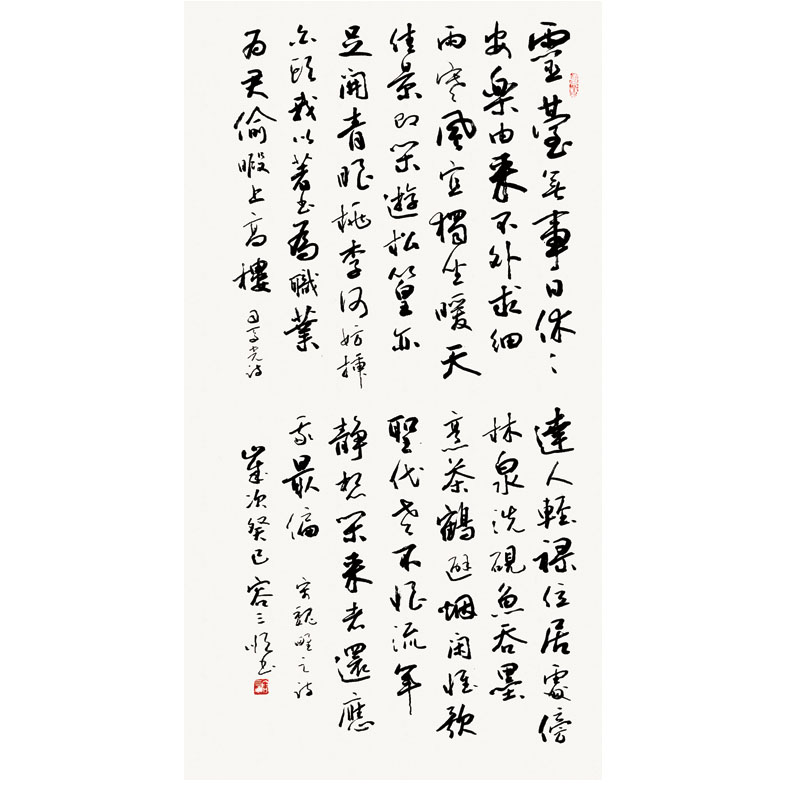 靈臺無事日休〻
安樂由來不外求細
雨寒風宜獨坐暖天
佳景即閑遊松篁亦
足開青眼桃李何妨插
白頭我以著書為職業
为君偷暇上高樓 司马光诗
達人輕祿位居處傍
林泉洗硯魚吞墨
烹茶鶴避烟閑惟歌
聖代老不恨流年
靜想閑来者還應
我最偏 宋魏野之诗
歲次癸巳